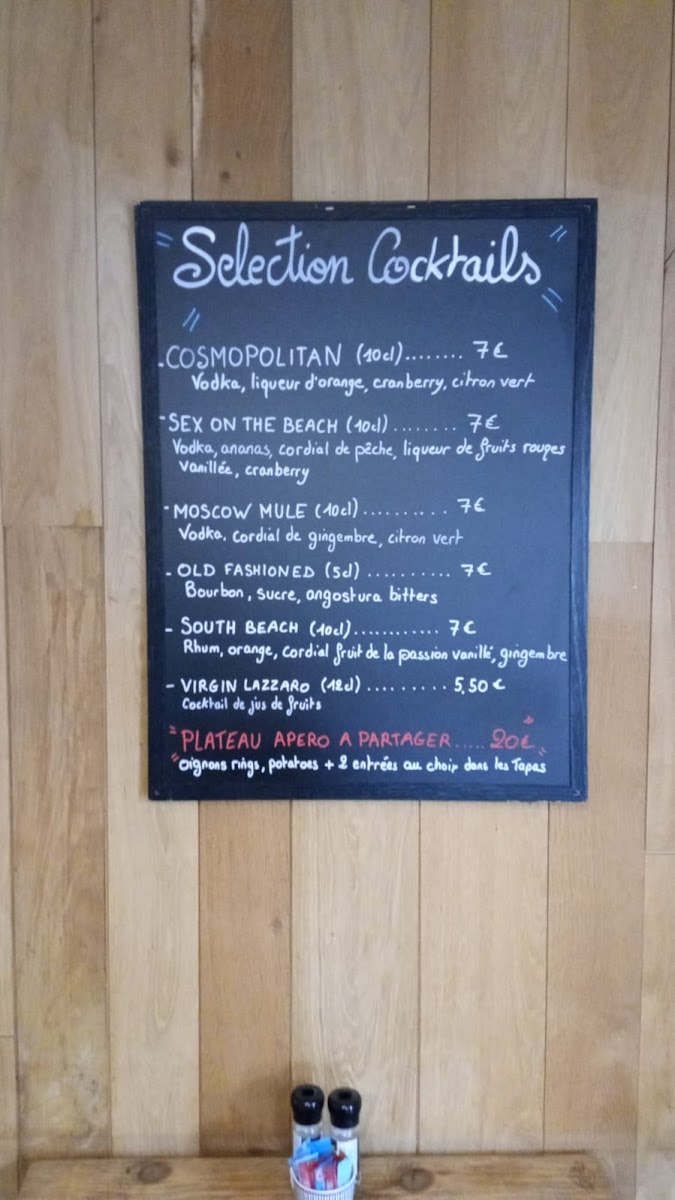 Selection Cocktails
- COSMOPOLITAN (10cl)........ 7€
Vodka, liqueur d'orange, cranberry, citron vert
- SEX ON THE BEACH (10cl) ........ 7€
Vodka, ananas, cordial de pêche, liqueur de fruits rouges
vanillée, cranberry
- MOSCOW MULE (10cl).......... 7€
Vodka. cordial de gingembre, citron vert
- OLD FASHIONED (5cl) .......... 7€
Bourbon, sucre, angostura bitters
- SOUTH BEACH (10cl)............ 7€
Rhum, orange, cordial fruit de la passion vanillé, gingembre
- VIRGIN LAZZARO (12cl) ......... 5,50€
Cocktail de jus de fruits
"PLATEAU APERO A PARTAGER..... 20€"
oignons rings, potatoes + 2 entrées au choix dans les Tapas